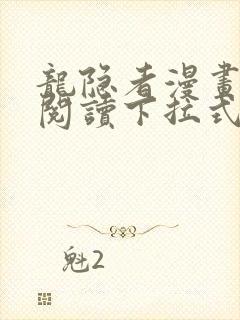 龍隐者漫畫
閱讀下拉式
魁2